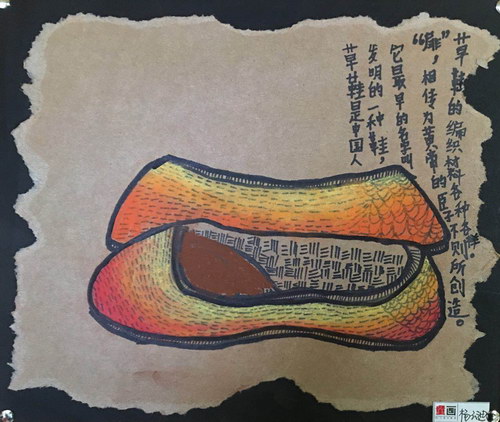 草鞋是中国人
发明的一种鞋，
它最早的名字叫
“屝”，相传为黄帝的臣子不则所创造。
草鞋的编织材料各种各样。
童画